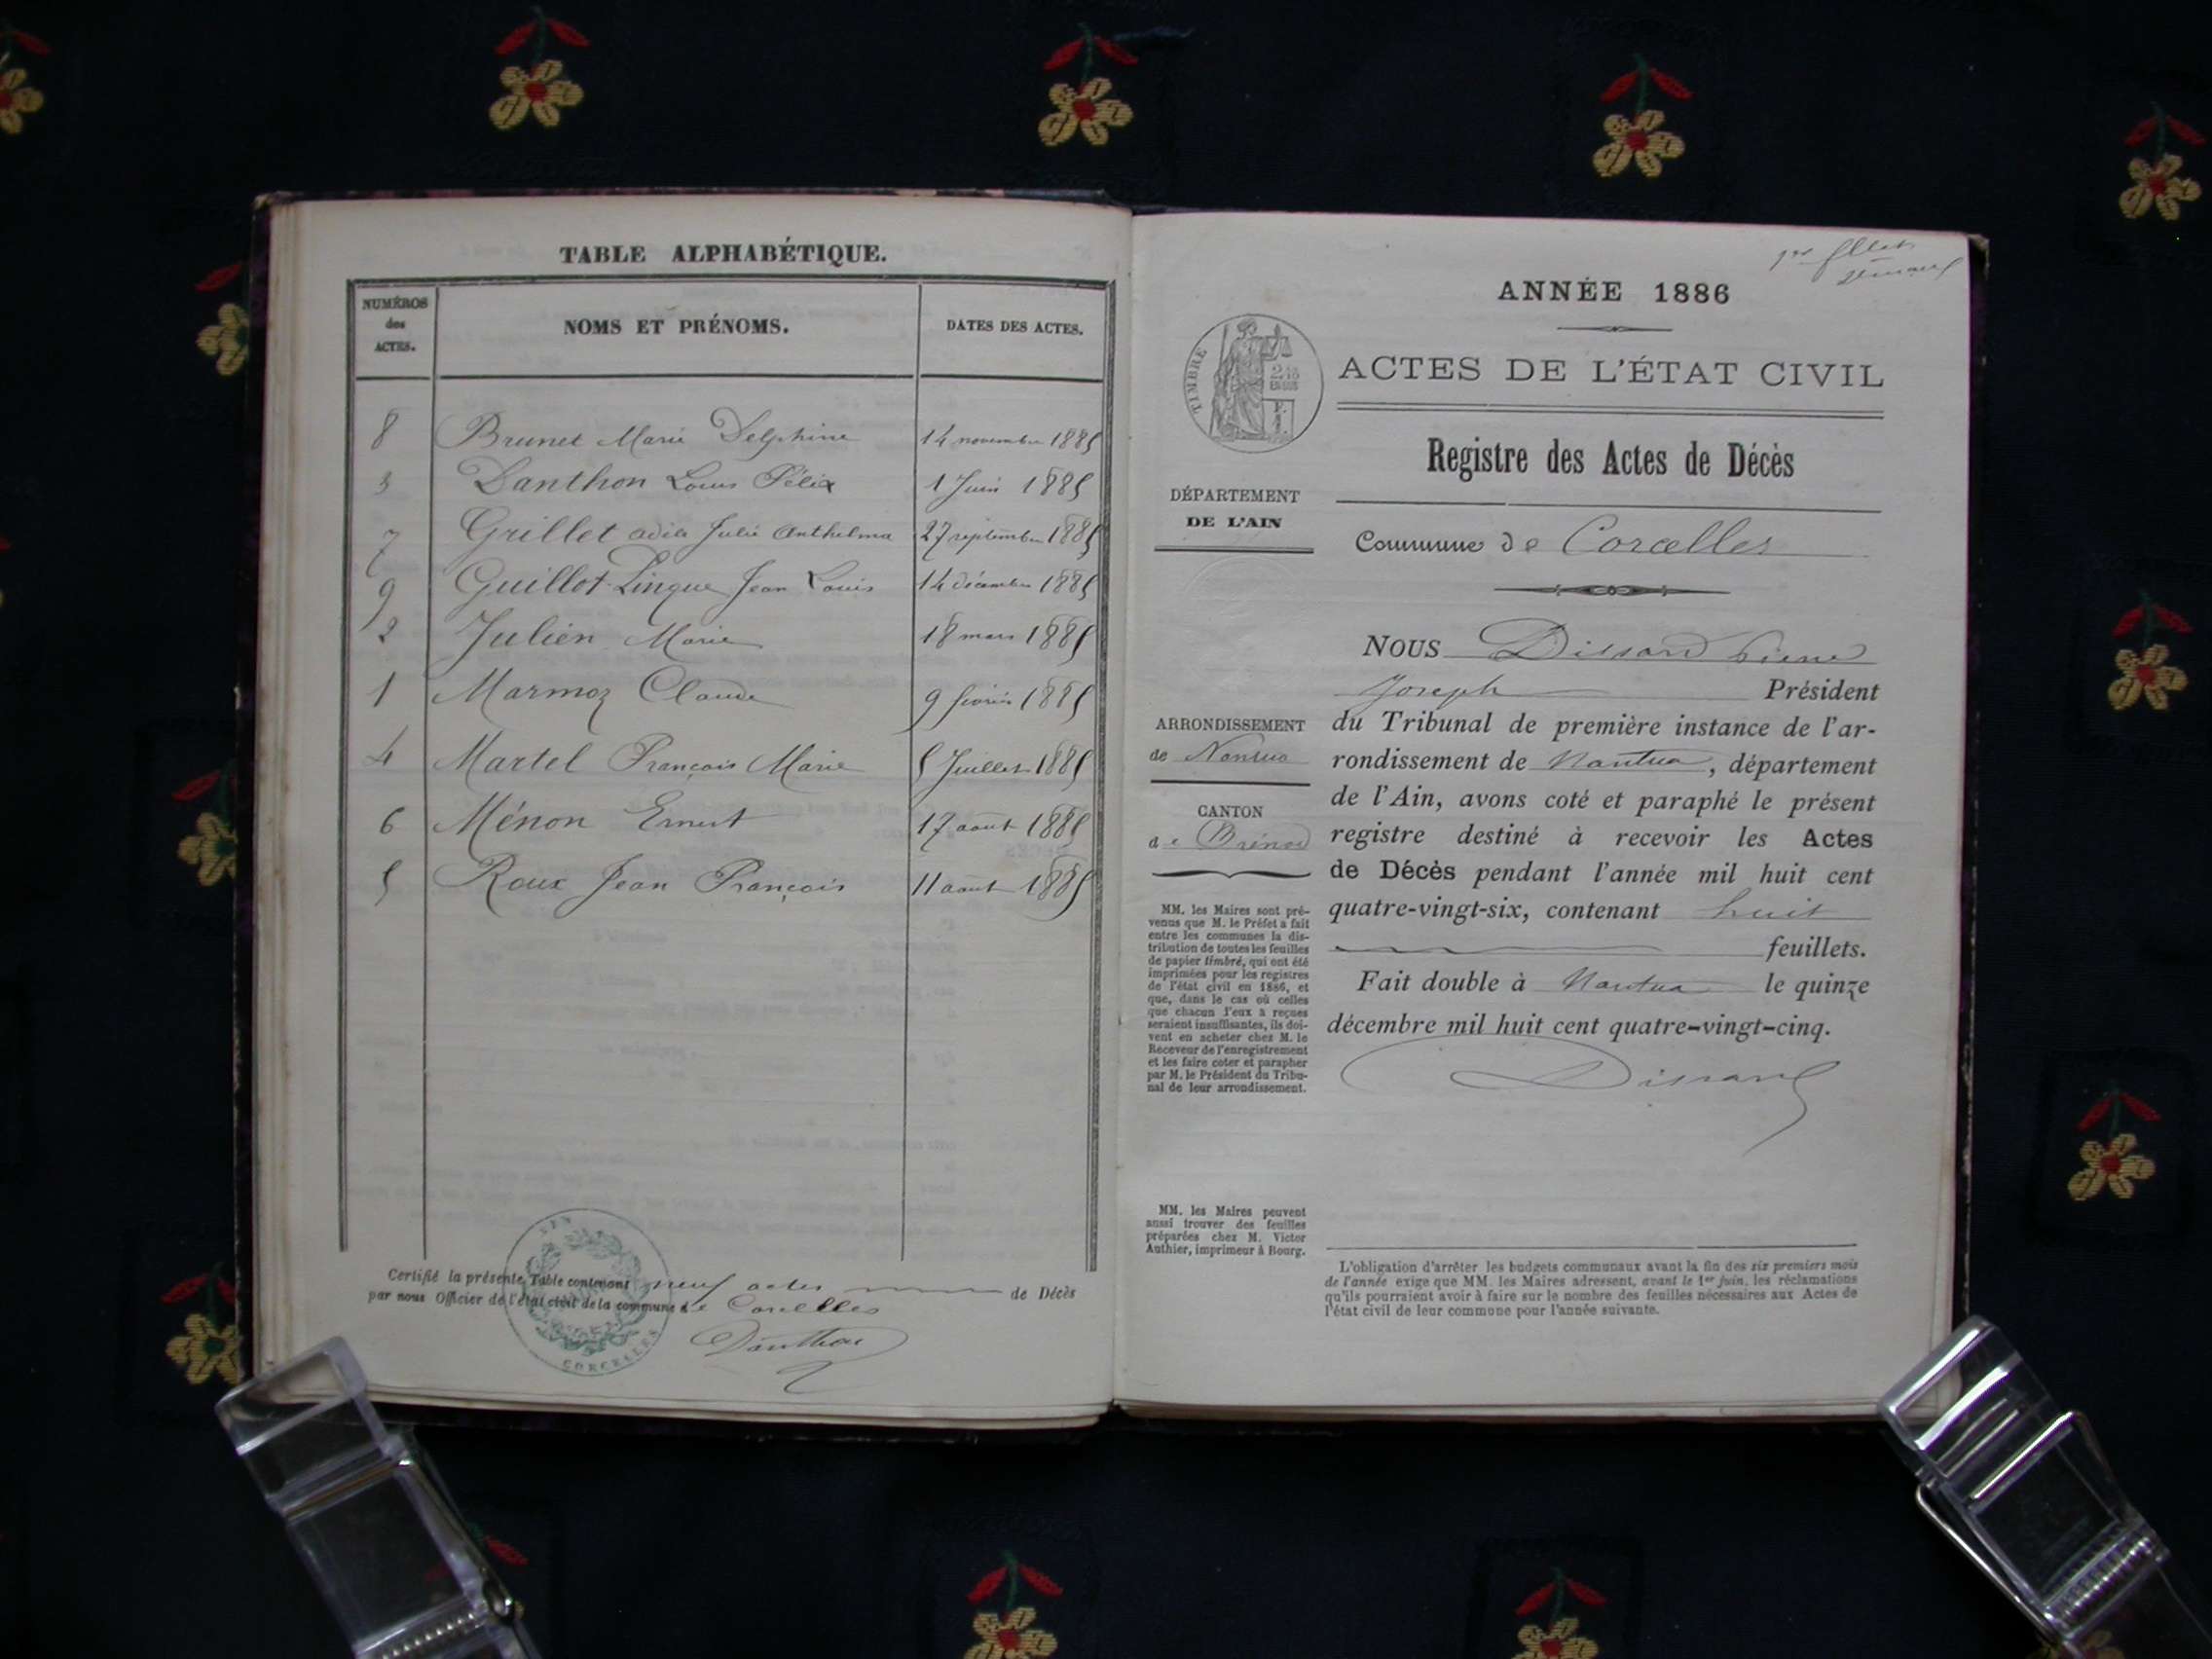 TABLE ALPHABÉTIQUE.
NUMÉROS
des
ACTES.
NOMS ET PRÉNOMS.
DATES DES ACTES.
8 Brunet Marie Delphine 14 novembre 1885
3 Danthon Louis Félix 1 Juin 1885
7 Grillet adèle Julie Anthelma 27 septembre 1885
9 Guillot-Lingue Jean Louis 14 décembre 1885
2 Julien Marie 18 mars 1885
1 Marmoz Claude 9 février 1885
4 Martel François Marie 5 Juillet 1885
6 Ménon Ernest 17 aout 1885
5 Roux Jean François 11 aout 1885
Certifié la présente Table contenant neuf actes de Décès
par nous Officier de l'état civil de la commune de Corcelles
Danthon
CORCELLES
ANNÉE 1886
ACTES DE L'ÉTAT CIVIL
TIMBRE
Registre des Actes de Décès
DÉPARTEMENT
DE L'AIN
Commune de Corcelles
NOUS Dissard Pierre
Joseph Président
du Tribunal de première instance de l'ar-
rondissement de Nantua, département
de l'Ain, avons coté et paraphé le présent
registre destiné à recevoir les Actes
de Décès pendant l'année mil huit cent
quatre-vingt-six, contenant huit
feuillets.
Fait double à Nantua le quinze
décembre mil huit cent quatre-vingt-cinq.
Dissard
ARRONDISSEMENT
de Nantua
CANTON
de Brénod
MM. les Maires sont pré-
venus que M. le Préfet a fait
entre les communes la dis-
tribution de toutes les feuilles
de papier timbré, qui ont été
imprimées pour les registres
de l'état civil en 1886, et
que, dans le cas où celles
que chacun d'eux a reçues
seraient insuffisantes, ils doi-
vent en acheter chez M. le
Receveur de l'enregistrement
et les faire coter et parapher
par M. le Président du Tribu-
nal de leur arrondissement.
MM. les Maires peuvent
aussi trouver des feuilles
préparées chez M. Victor
Authier, imprimeur à Bourg.
L'obligation d'arrêter les budgets communaux avant la fin des six premiers mois
de l'année exige que MM. les Maires adressent, avant le 1er juin, les réclamations
qu'ils pourraient avoir à faire sur le nombre des feuilles nécessaires aux Actes de
l'état civil de leur commune pour l'année suivante.